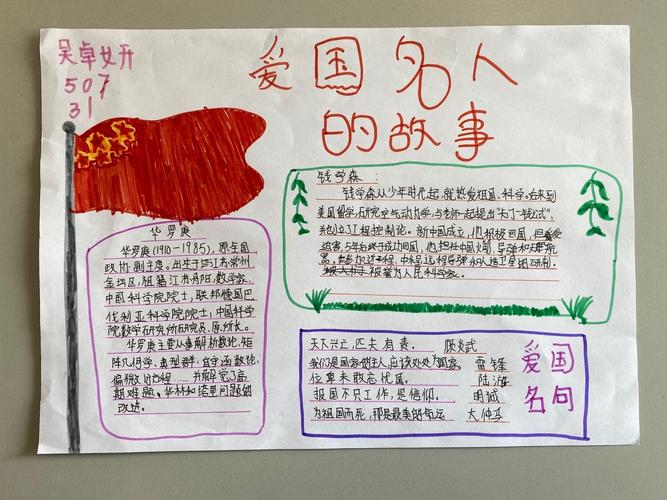 吴卓妍
507
31
爱国名人
的故事
华罗庚
华罗庚(1910-1985),原全国
政协副主席。出生于江苏常州
金坛区,祖籍江苏丹阳,数学家,
中国科学院院士,联邦德国巴
伐利亚科学院院士,中国科学
院数学研究所研究员、原所长。
华罗庚主要从事解析数论、矩
阵几何学、典型群、自守函数论、
偏微分方程……并解决了高
期难题、华林和塔里问题的
改进。
钱学森:
钱学森从少年时代起,就热爱祖国、科学。后来到
美国留学,研究空气动力学,与老师一起提出“卡门-钱公式”,
创立了工程控制论。新中国成立,他积极回国,但
迫害,5年后终于成功回国,他担任中国火箭、导弹和
参加近程、中程远程导弹和人造卫星的研制。
被誉为人民科学家。
天下兴亡,匹夫有责。 顾炎武
我们是国家的主人,应该处处为国家。 雷锋
位卑未敢忘忧国。 陆游
报国不只工作,是信仰。 明诚
为祖国而死,那是最美的命运 大仲马
爱国
名句